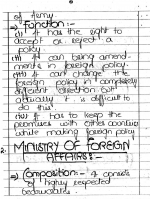 of ferry
⇒ Function :-
(i) It has the right to
accept or reject a
policy.
(ii) It can bring amend-
ments in foreign policy.
(iii) It can change the
foreign policy in completely
different direction but
actually it is difficult to
do this.
(iv) It has to keep the
promises with other countries
while making foreign policy
2. MINISTRY OF FOREIGN
AFFAIRS :-
⇒ Composition :- It consists
of highly respected
beaurocrates.